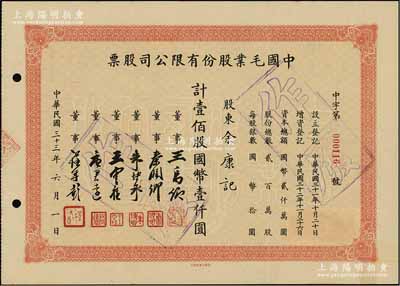 上海陽明拍賣
中國毛業股份有限公司股票
中字第 000116 號
設立登記 中華民國三十一年十月二十日
增資登記 中華民國三十二年十一月二十六日
資本總額 國幣貳仟萬圓
股份總數 貳百萬股
每股銀數 國幣拾圓
股東 余康記
計壹佰股國幣壹仟圓
董事
董事
董事
董事
董事
中華民國三十三年六月一日
上海陽明拍賣